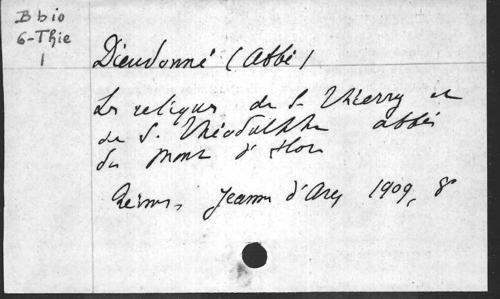 B bio
6-Thie
1
Dieudonné (Abbé)
Les reliques de S. Thierry et
de S. Théodulphe abbés
du Mont d'Hor
Reims, Jeanne d'Arc, 1909, 8°